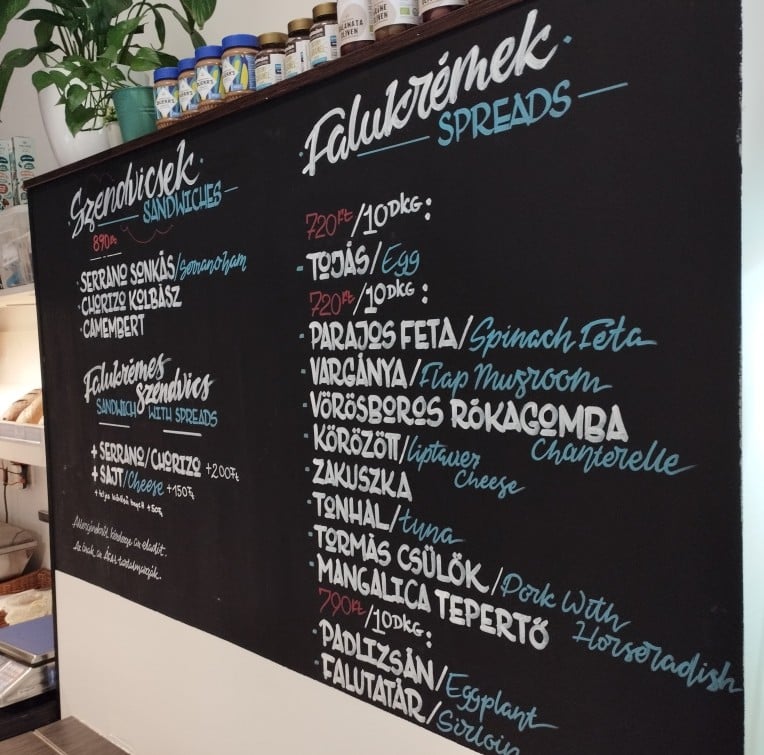 Szendvicsek
SANDWICHES
890Ft
SERRANO SONKÁS/Serrano ham
CHORIZO KOLBÁSZ
CAMEMBERT
Falukrémes
szendvics
SANDWICH WITH SPREADS
+ SERRANO/CHORIZO +200Ft
+ SAJT/Cheese +150Ft
Allergénekről kérdezze az eladót.
Az árak az ÁFÁ-t tartalmazzák.
Falukrémek
SPREADS
720Ft/10DKG:
- TOJÁS/Egg
720Ft/10DKG:
- PARAJOS FETA/Spinach Feta
- VARGÁNYA/Flap Muzroom
- VÖRÖSBOROS RÓKAGOMBA
Chanterelle
- KÖRÖZÖTT/liptauer
Cheese
- ZAKUSZKA
- TONHAL/tuna
- TORMÁS CSÜLÖK/Pork With
Horseradish
- MANGALICA TEPERTŐ
790Ft/10DKG:
- PADLIZSÁN/Eggplant
- FALUTATÁR/Sirloin